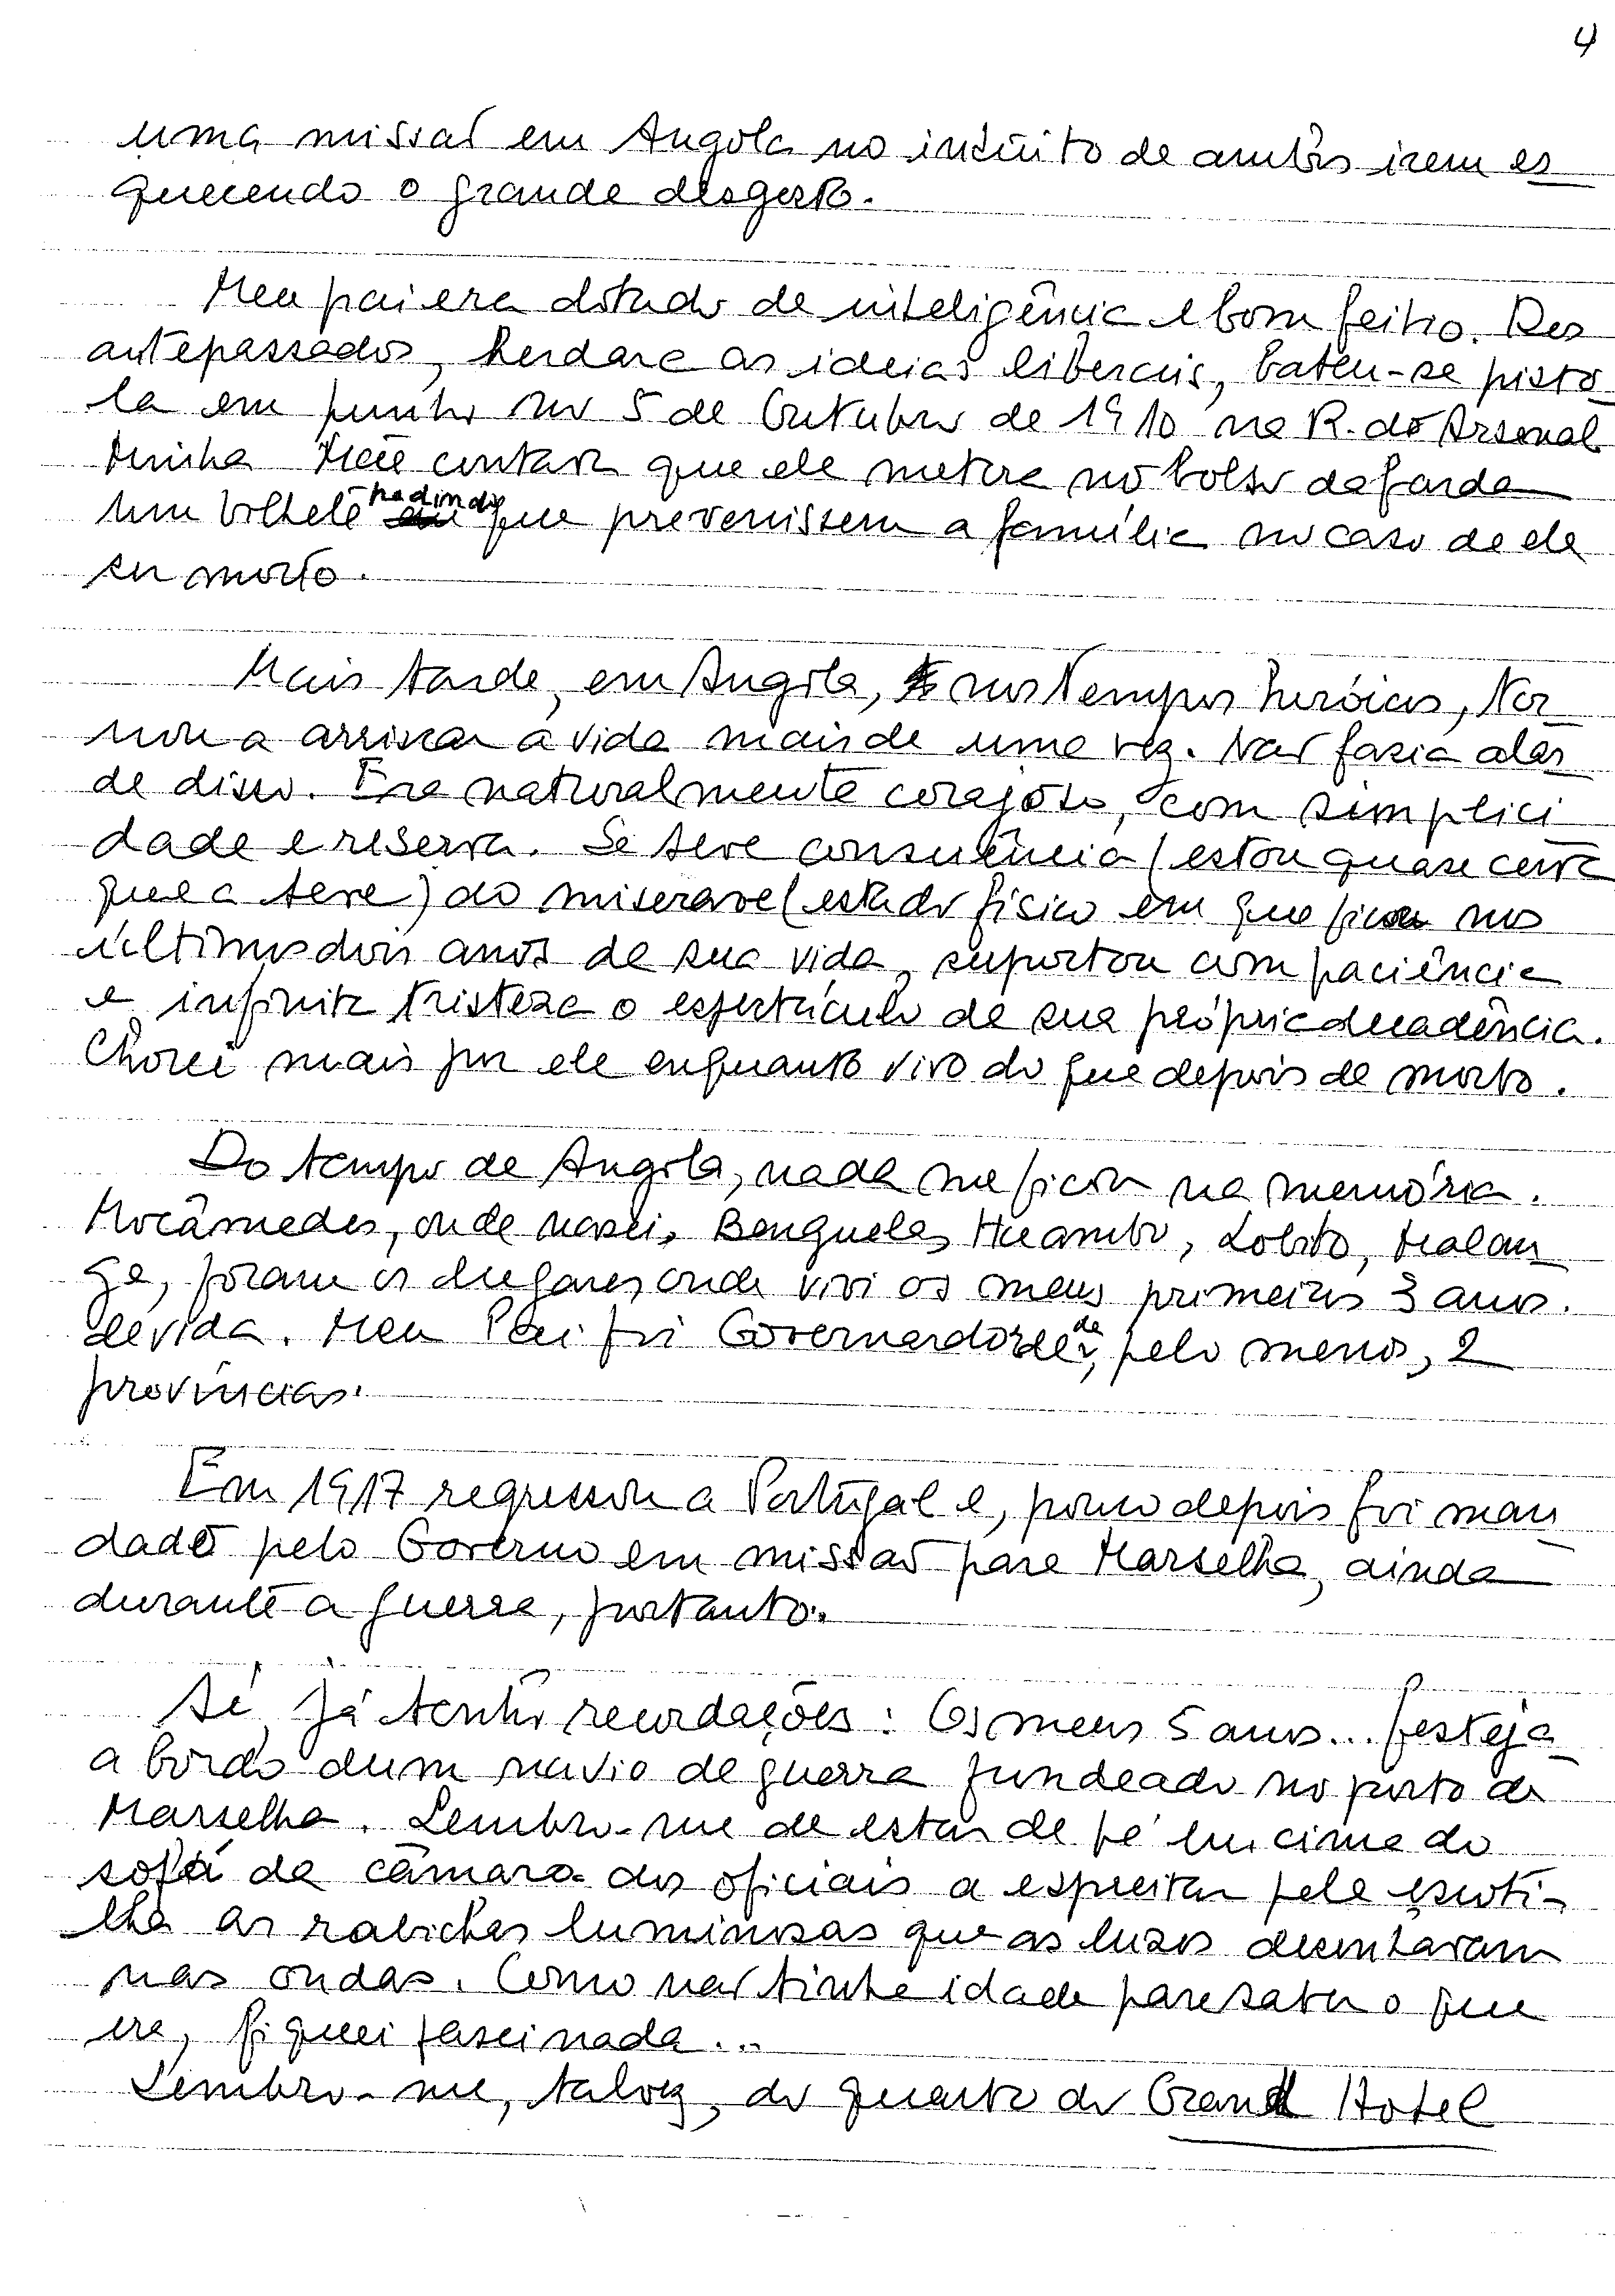 4
uma missão em Angola no intuito de ambos irem es
quecendo o grande desgosto.
Meu pai era dotado de inteligência e bom feitio. Dos
antepassados, herdara as ideias liberais, bateu-se pisto-
la em punho no 5 de Outubro de 1910 na R. do Arsenal
Minha Mãe contava que ele metera no bolso da farda
um bilhete pedindo que prevenissem a família no caso de ele
ser morto.
Mais tarde, em Angola, nos tempos heróicos, tor
nou a arriscar a vida mais de uma vez. Não fazia alar
de disso. Era naturalmente corajoso, com simplici
dade e reserva. Se teve consciência (estou quase certa
que a teve) do miserável estado físico em que ficou nos
últimos dois anos de sua vida, suportou com paciência
e infinita tristeza o espectáculo de sua própria decadência.
Chorei mais por ele enquanto vivo do que depois de morto.
Do tempo de Angola, nada me ficou na memória.
Moçâmedes, onde nasci, Benguela, Huambo, Lobito, Malan
ge, foram os lugares onde vivi os meus primeiros 3 anos
de vida. Meu Pai foi Governador de, pelo menos, 2
províncias.
Em 1917 regressou a Portugal e, pouco depois foi man
dado pelo Governo em missão para Marselha, ainda
durante a guerra, portanto.
Aí, já tenho recordações: Os meus 5 anos... festejo
a bordo dum navio de guerra fundeado no porto de
Marselha. Lembro-me de estar de pé em cima do
sofá da câmara dos oficiais a espreitar pela escoti-
lha as rabichas luminosas que as luzes desenhavam
nas ondas. Como não tinha idade para saber o que
era, fiquei fascinada...
Lembro-me, talvez, do quarto do Grand Hotel